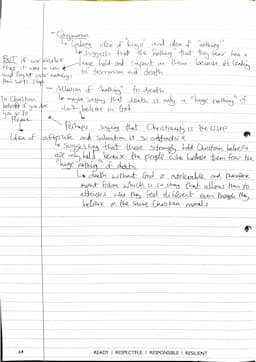 - Oxymoron
↳ linking idea of "huge" and idea of "nothing"
↳ suggests that the "nothing" that they fear has a
huge hold and impact on them because its leading
to terrorism and death
BUT if we realise
that it was a
and fight over nothing,
then we'd stop
- Allusion of "nothing" to death
↳ maybe saying that death is only a "huge nothing" if
don't believe in God
In Christian
beliefs if you die
you go to
Heaven
↳ Perhaps saying that Christianity is the issue
Idea of afterlife and salvation is so attractive
↳ Suggesting that these strongly held Christian beliefs
are only held because the people who believe them fear the
"huge nothing" of death
↳ death without God is intolerable and therefore
them to
they feel different even though they
believe in the same Christian morals
READY | RESPECTFUL | RESPONSIBLE | RESILIENT